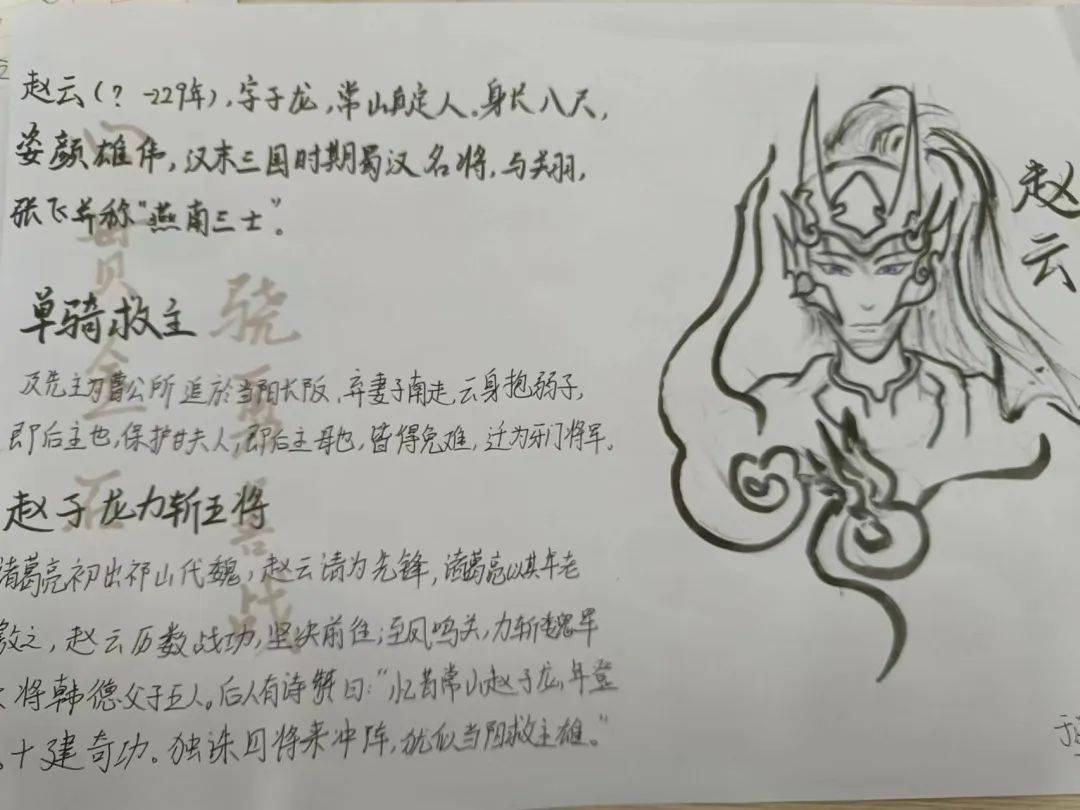 赵云(？-229年),字子龙,常山真定人.身长八尺,
姿颜雄伟,汉末三国时期蜀汉名将,与关羽,
张飞并称"燕南三士"。
单骑救主
及先主为曹公所追於当阳长阪,弃妻子南走,云身抱弱子,
即后主也,保护甘夫人,即后主母也,皆得免难,迁为牙门将军。
赵子龙力斩五将
诸葛亮初出祁山代魏,赵云请为先锋,诸葛亮以其年老
激之,赵云历数战功,坚决前往;至凤鸣关,力斩魏军
将韩德父子五人。后人有诗赞曰:"忆昔常山赵子龙,年登
十建奇功。独诛四将来冲阵,犹似当阳救主雄。"
骁勇善战
赵云